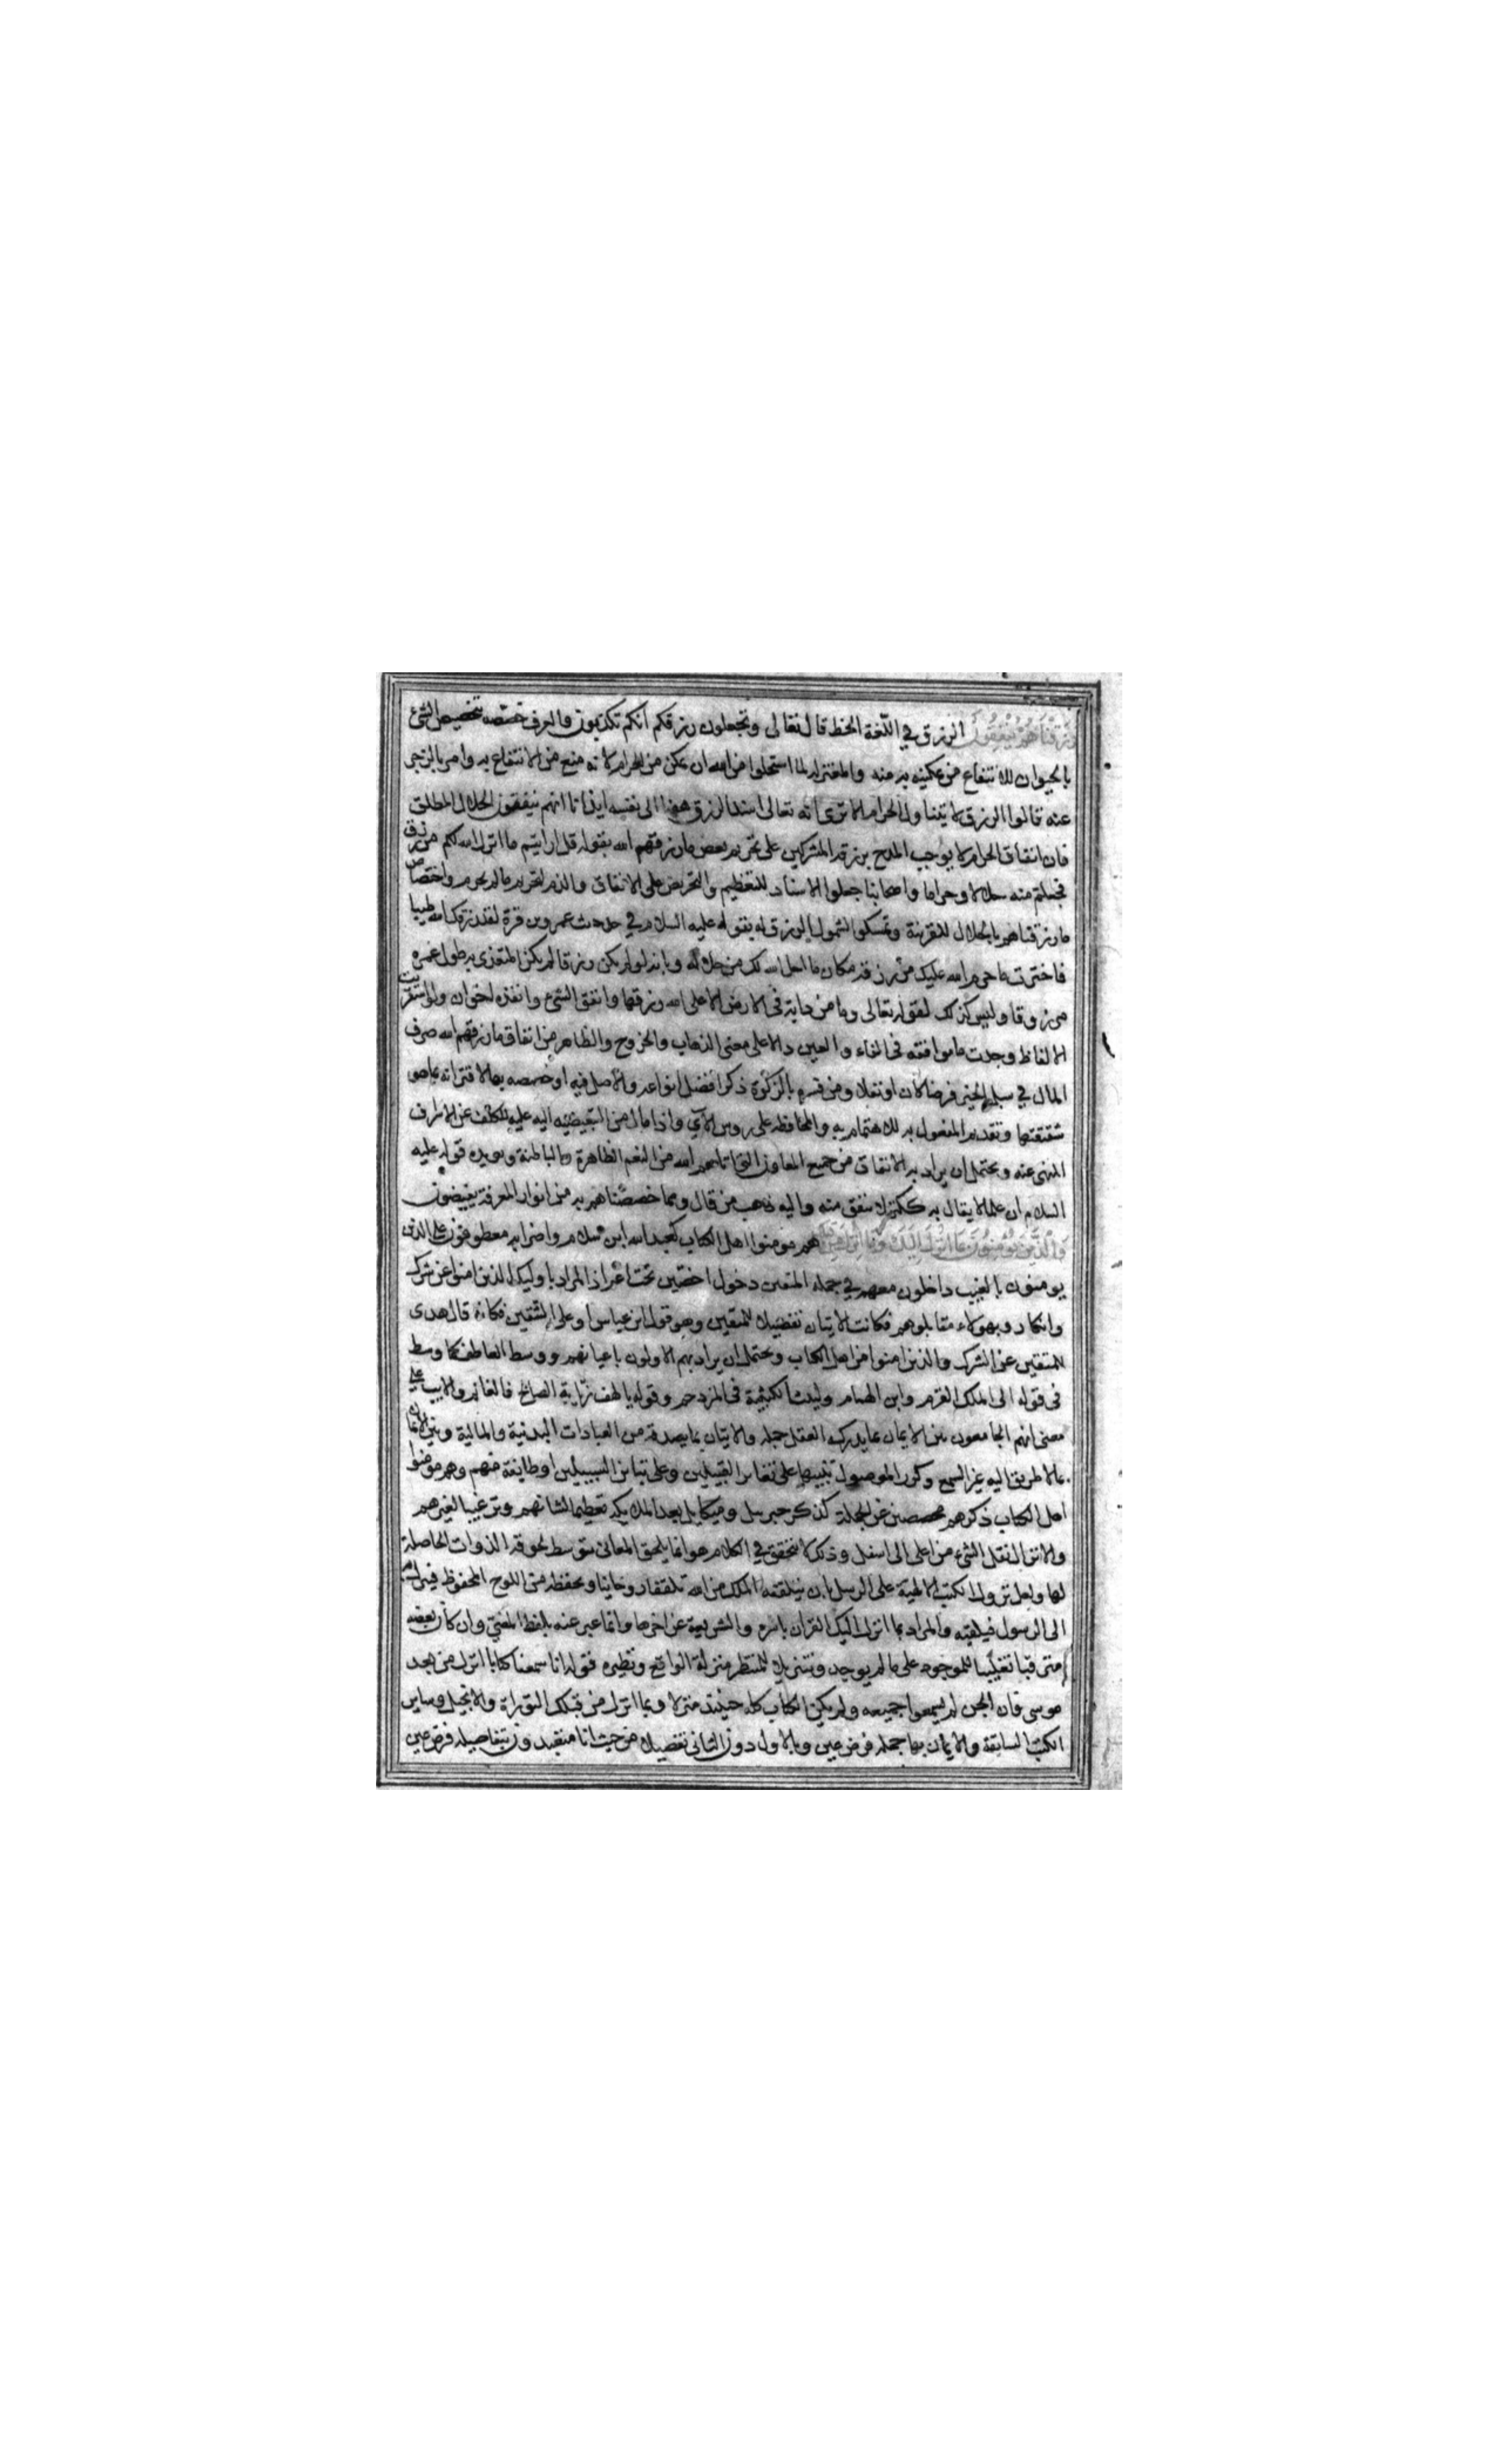 رزقناهم ينفقون الرزق في اللغة الحظ قال تعالى وتجعلون رزقكم انكم تكذبون والعرف خصصه بتخصيص الشئ
بالحيوان للانتفاع من تمكينه به منه والمعتزلة لما استحلوا من الله ان يمكن من الحرام لانه منع من الانتفاع به وامر بالزجر
عنه قالوا الرزق لا يتناول الحرام الا ترى انه تعالى اسند الرزق ههنا الى نفسه ايذانا انهم ينفقون الحلال المطلق
فان انفاق الحرام لا يوجب المدح بن قد المشركين على تحريم بعض ما رزقهم الله بقوله قل ارايتم ما انزل الله لكم من رزق
فجعلتم منه حلالا وحراما واصحابنا جعلوا الاسناد للتعظيم والتحريض على الانفاق والذم لتحريم مالم يحرم واختصاص
ما رزقناهم بالحلال للقرينة وتمسكوا لشمول الرزق له بقوله عليه السلام في حديث عمرو بن قرة لقد رزقك الله طيبا
فاخترت ما حرم الله عليك من رزقه مكان ما احل الله لك من حلاله وبانه لو لم يكن رزقا لم يكن المتغذى به طول عمره
مرزوقا وليس كذلك لقوله تعالى وما من دابة في الارض الا على الله رزقها وانفق الشئ وانفذه اخوان ولو استقريت
الالفاظ وجدت ما موافقه في الفاء والعين دالا على معنى الذهاب والخروج والظاهر من انفاق ما رزقهم الله صرف
المال في سبيل الخير فرضا كان او نفلا ومن فسره بالزكوة ذكر افضل انواعه والاصل فيه او خصصه بها لاقترانه بما هو
شقيقتها وتقديم المفعول به للاهتمام به والمحافظه على روس الآي وادخال من التبعيضيه اليه عليه للكف عن الاسراف
المنهى عنه ويحتمل ان يراد به الانفاق من جميع المعاون التي اتاهم الله من النعم الظاهرة والباطنة ويويده قوله عليه
السلام ان علما لا يقال به ككنز لا ينفق منه واليه ذهب من قال ومما خصصناهم به من انوار المعرفة يفيضون
والذين يؤمنون بما انزل اليك وما انزل من قبلك هم مومنوا اهل الكتاب كعبد الله ابن سلام واضرابه معطوفون على الذين
يومنون بالغيب داخلون معهم في جملة المتقين دخول اخصين تحت اعم اذ المراد باوليك الذين امنوا عن شرك
وانكار وبهولاء مقابلوهم فكانت الايتان تفضيلا للمتقين وهو قول ابن عباس او على المتقين فكانه قال هدى
للمتقين عن الشرك والذين امنوا من اهل الكتاب ويحتمل ان يراد بهم الاولون باعيانهم ووسط العاطف كما وسط
في قوله الى الملك القرم وابن الهمام وليث الكتيبة في المزدحم وقوله يا لهف زيابة الصالح فالغانم والايب على
معنى انهم الجامعون بين الايمان بما يدركه العقل جملة والاتيان بما يصدقه من العبادات البدنية والمالية وبين الايمان
بما لا طريق اليه غير السمع وكرر الموصول تنبيها على تغاير القبيلين وعلى تباين السبيلين او طايفة منهم وهم مومنوا
اهل الكتاب ذكرهم مخصصين عن الجملة كذكر جبريل وميكايل بعد الملايكة تعظيما لشانهم وترغيبا لغيرهم
والانزال نقل الشئ من اعلى الى اسفل وذلك لا يتحقق في الكلام هو انما يلحق المعانى بتوسط لحوقه الذوات الحاصلة
لها ولعل نزول الكتب الالهية على الرسل بان يتلقفه الملك من الله تلقفا روحانيا ويحفظه من اللوح المحفوظ فينزل به
الى الرسول فيلقيه والمراد بما انزل اليك القران باسره والشريعة عن اخرها وانما عبر عنه بلفظ المضي وان كان بعضه
مترقبا تغليبا للموجود على ما لم يوجد وتنزيلا للمنتظر منزلة الواقع ونظيره قوله انا سمعنا كتابا انزل من بعد
موسى فان الجن لم يسمعوا جميعه ولم يكن الكتاب كله حينئذ منزلا وبما انزل من قبلك التوراة والانجيل وساير
الكتب السابقة والايمان بهما جملة فرض عين وبالاول دون الثاني تفصيلا من حيث انا متعبدون بتفاصيله فرض عين